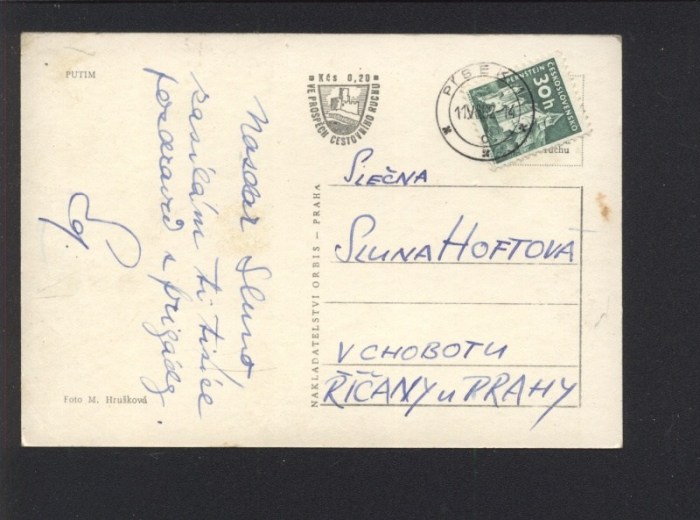 PUTIM
Nazdar Sluno
zasílám ti tisíce
pozdravů z brigády
Foto M. Hrušková
NAKLADATELSTVÍ ORBIS — PRAHA
Kčs 0,20
VE PROSPĚCH CESTOVNÍHO RUCHU
PERNŠTEJN
ČESKOSLOVENSKO
30h
ruchu
SLEČNA
SLUNA HOFTOVÁ
V CHOBOTU
ŘÍČANY u PRAHY